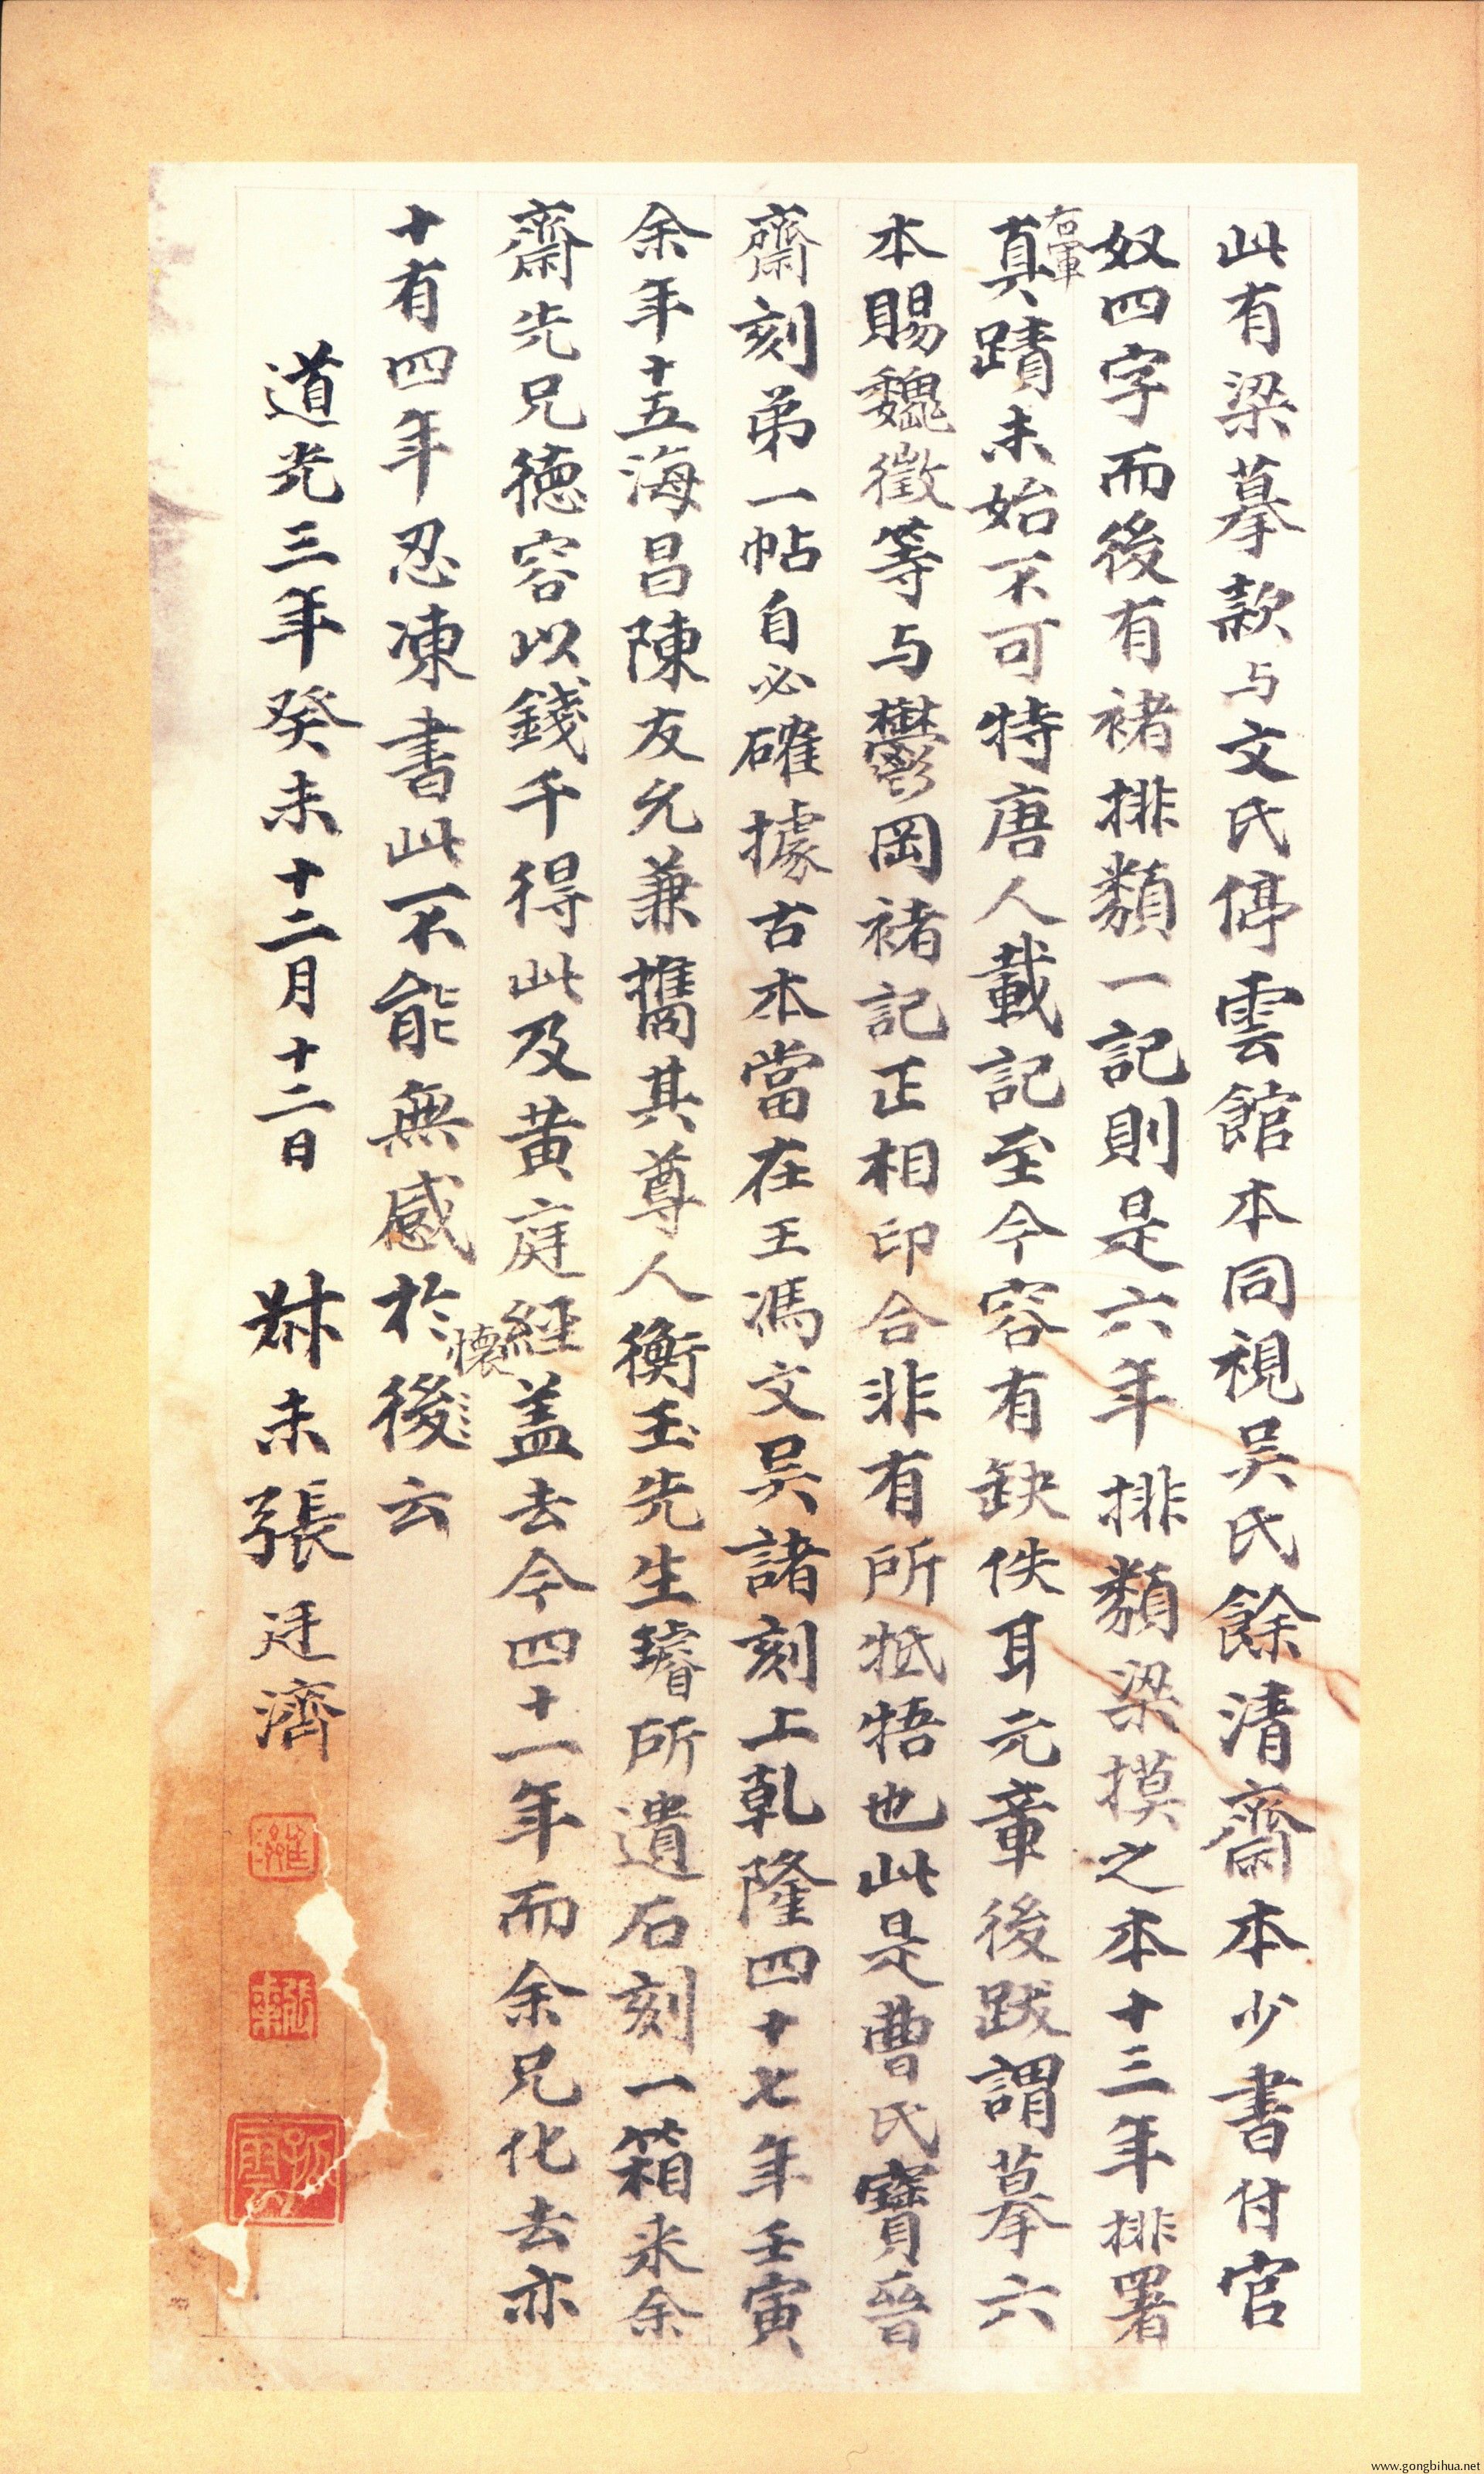 此有梁摹款与文氏停雲館本同視吴氏餘清齋本少書付官
奴四字而後有褚排類一記則是六年排類梁摸之本十三年排署
右軍
真蹟未始不可特唐人載記至今容有缺佚耳元章後跋謂摹六
本賜魏徵等与鬱岡褚記正相印合非有所牴牾也此是曹氏寶晉
齋刻弟一帖自必確據古本當在王馮文吴諸刻上乾隆四十七年壬寅
余年十五海昌陳友允兼攜其尊人衡玉先生璿所遺石刻一箱来余
齋先兄德容以錢千得此及黄庭經盖去今四十一年而余兄化去亦
懷
十有四年忍凍書此不能無感於後云
道光三年癸未十二月十二日 叔未張廷濟
www.gongbihua.net